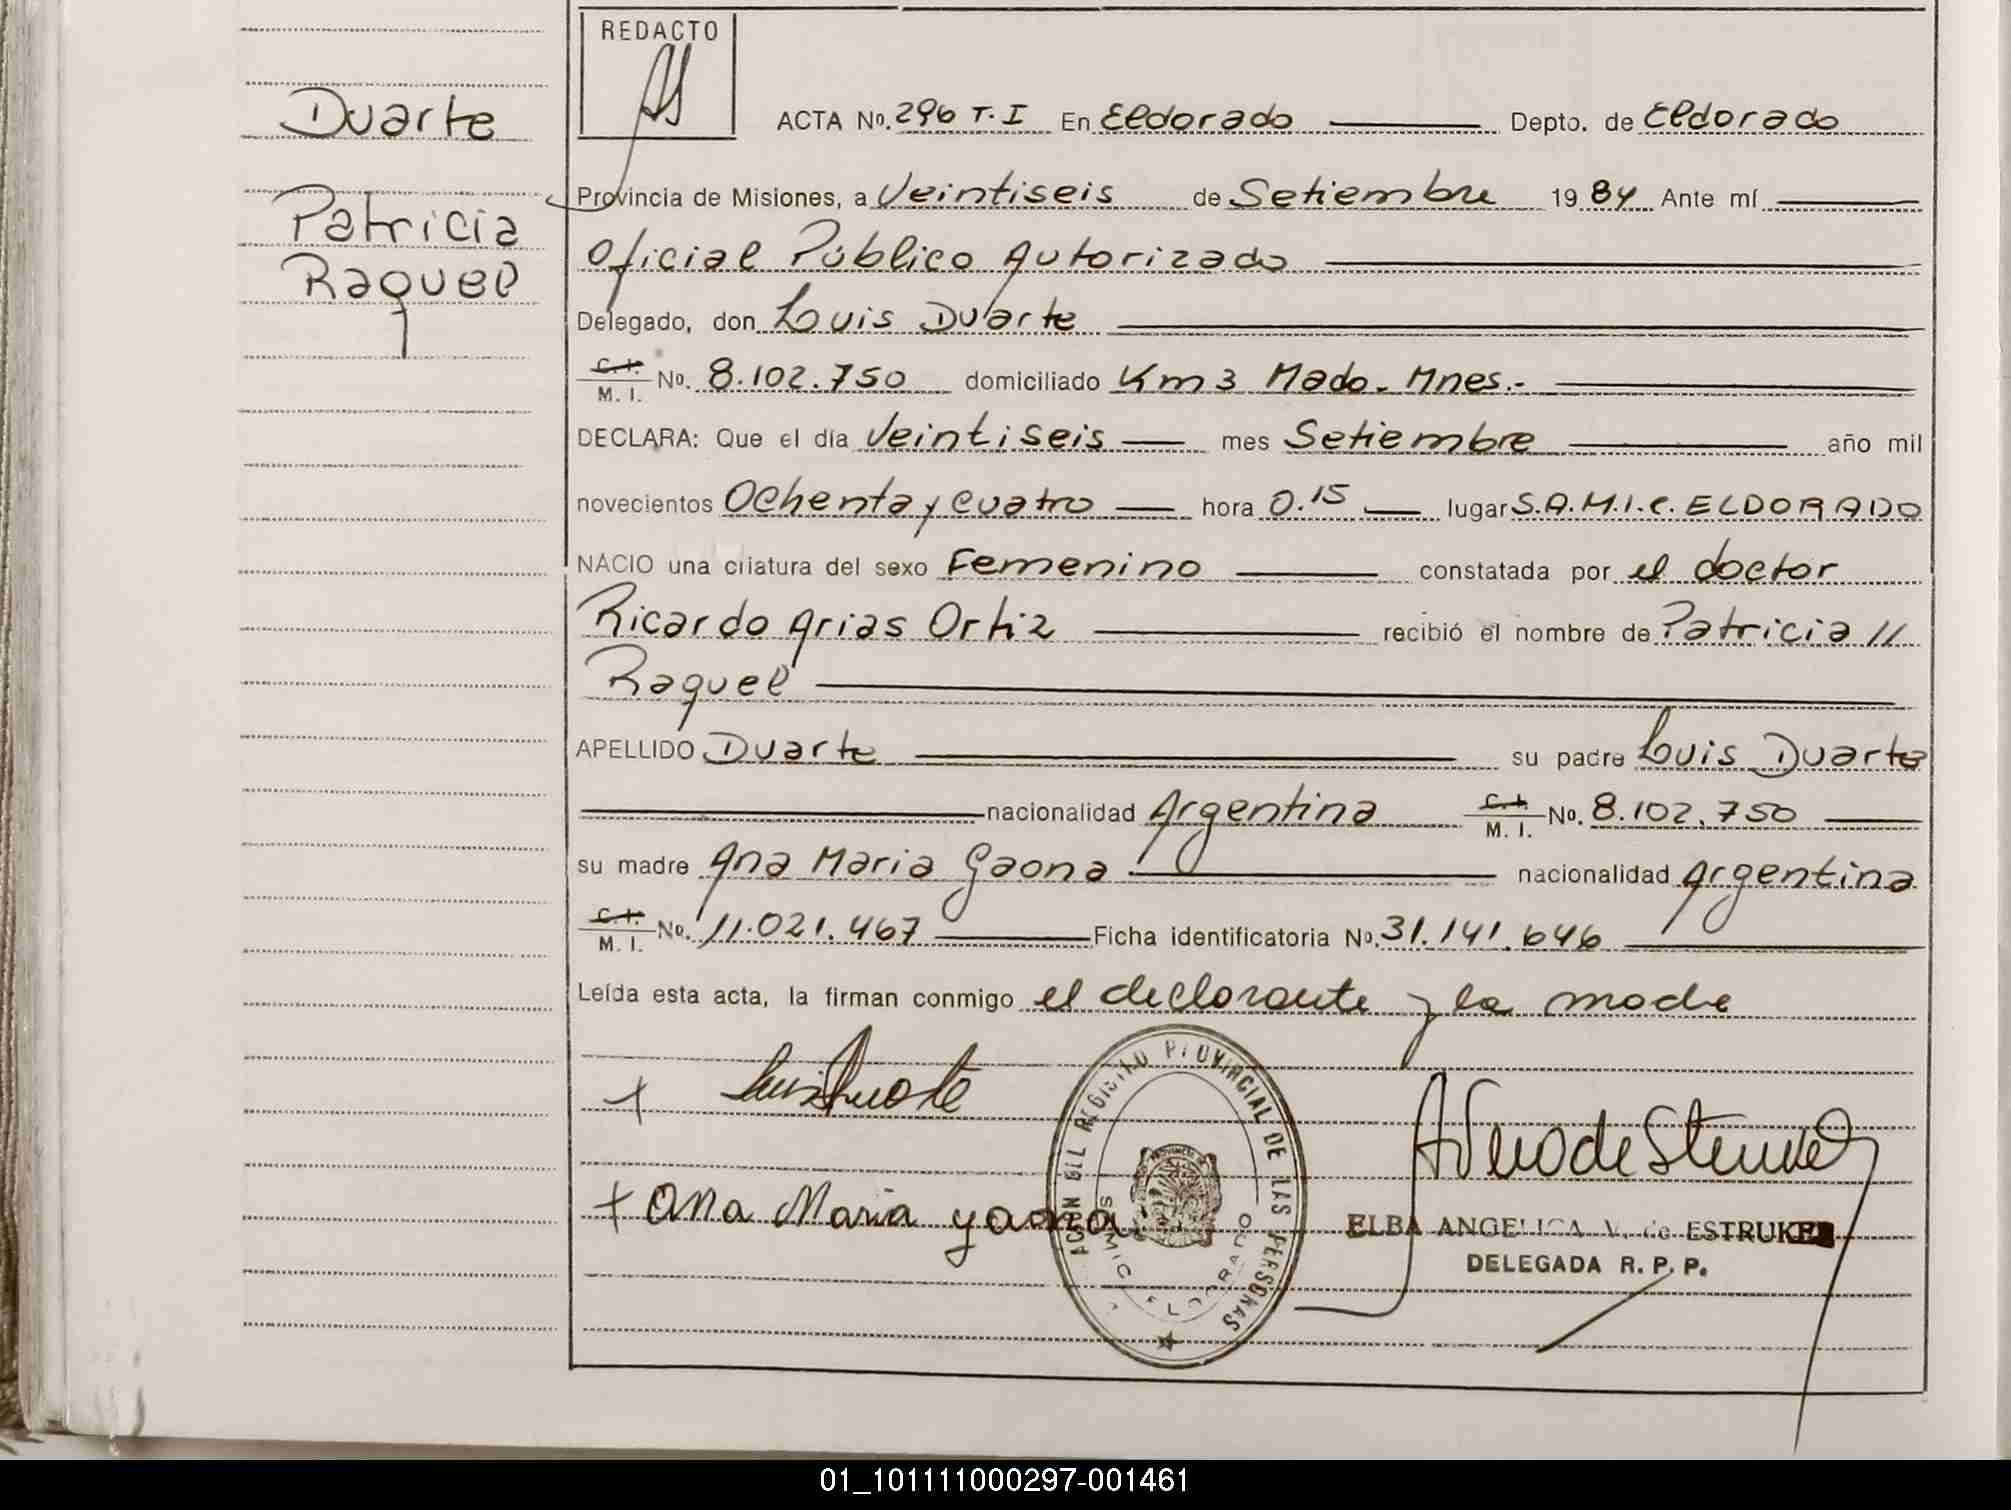 REDACTO
Duarte
Patricia
Raquel
ACTA No. 296 T.I En Eldorado Depto. de Eldorado
Provincia de Misiones, a Veintiseis de Setiembre 1984 Ante mí
Oficial Público Autorizado
Delegado, don Luis Duarte
C. I. M. I. No. 8.102.750 domiciliado Km 3 Mado. Mnes.-
DECLARA: Que el día Veintiseis mes Setiembre año mil
novecientos Ochenta y cuatro hora 0.15 lugar S.A.M.I.C. ELDORADO
NACIO una criatura del sexo Femenino constatada por el doctor
Ricardo Arias Ortiz recibió el nombre de Patricia //
Raquel
APELLIDO Duarte su padre Luis Duarte
nacionalidad Argentina C. I. M. I. No. 8.102.750
su madre Ana Maria Gaona nacionalidad Argentina
C. I. M. I. No. 11.021.467 Ficha identificatoria No. 31.141.646
Leída esta acta, la firman conmigo el declarante y la madre
Luis Duarte
+ Ana Maria gaona
REGISTRO PROVINCIAL DE LAS PERSONAS
SAMIC ELDORADO
ELBA ANGELICA V. de ESTRUKEL
DELEGADA R. P. P.
01_101111000297-001461